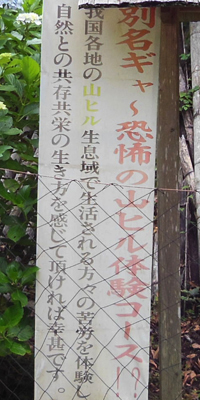 別名ギャ～恐怖の山ヒル体験コース!?
我国各地の山ヒル生息域で生活される方々の苦労を体験し
自然との共存共栄の生き方を感じて頂ければ幸甚です。